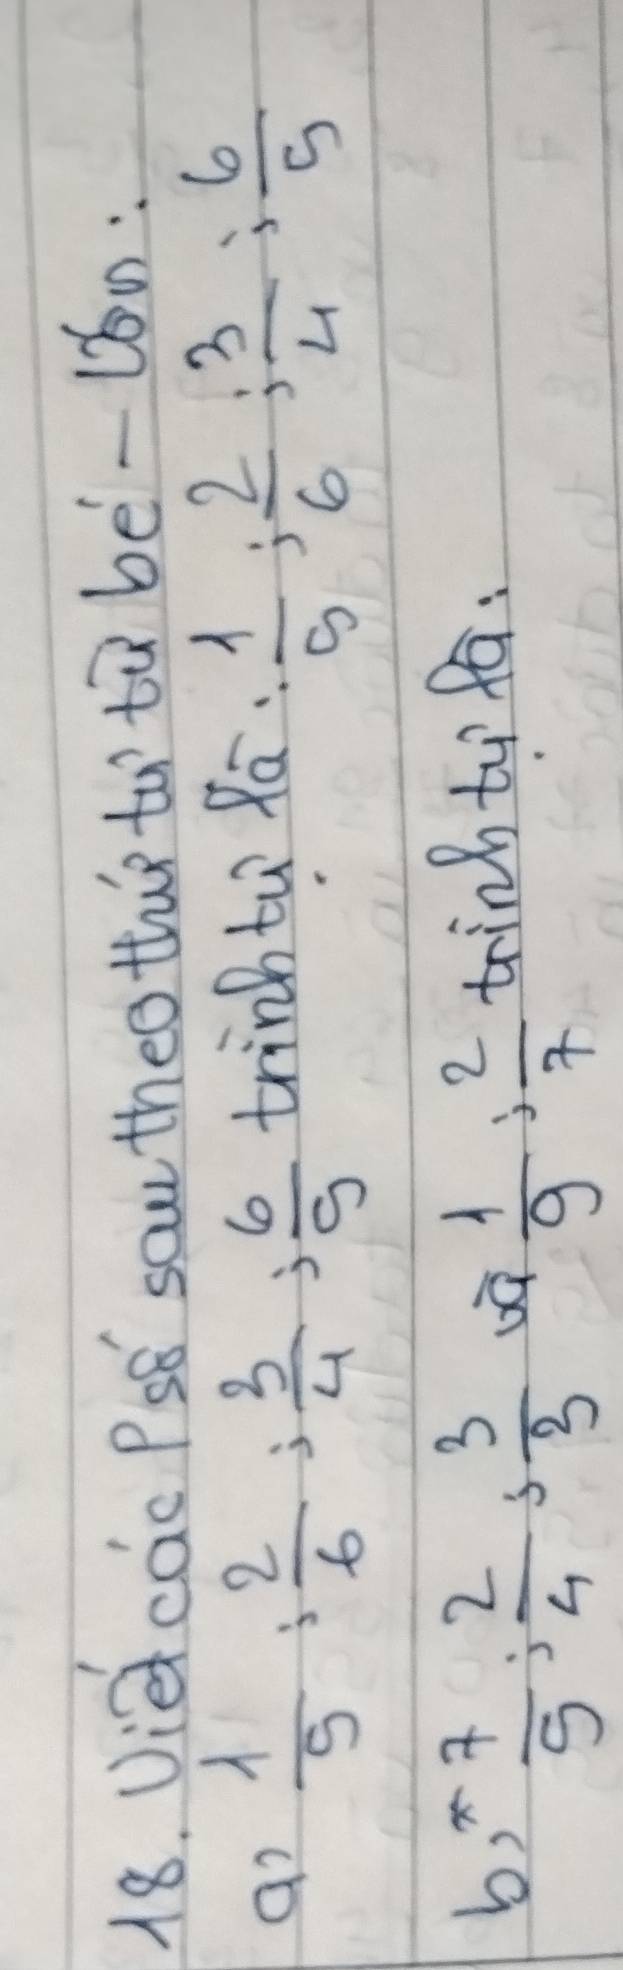 18. Viết các P số sau theo thứ tự từ bé - lớn:
a, 1/5 ; 2/6 ; 3/4 ; 6/5 trình tự là: 1/5 ; 2/6 ; 3/4 ; 6/5
b,* 7/5 ; 2/4 ; 3/3 và 1/9 ; 2/7 trình tự là: